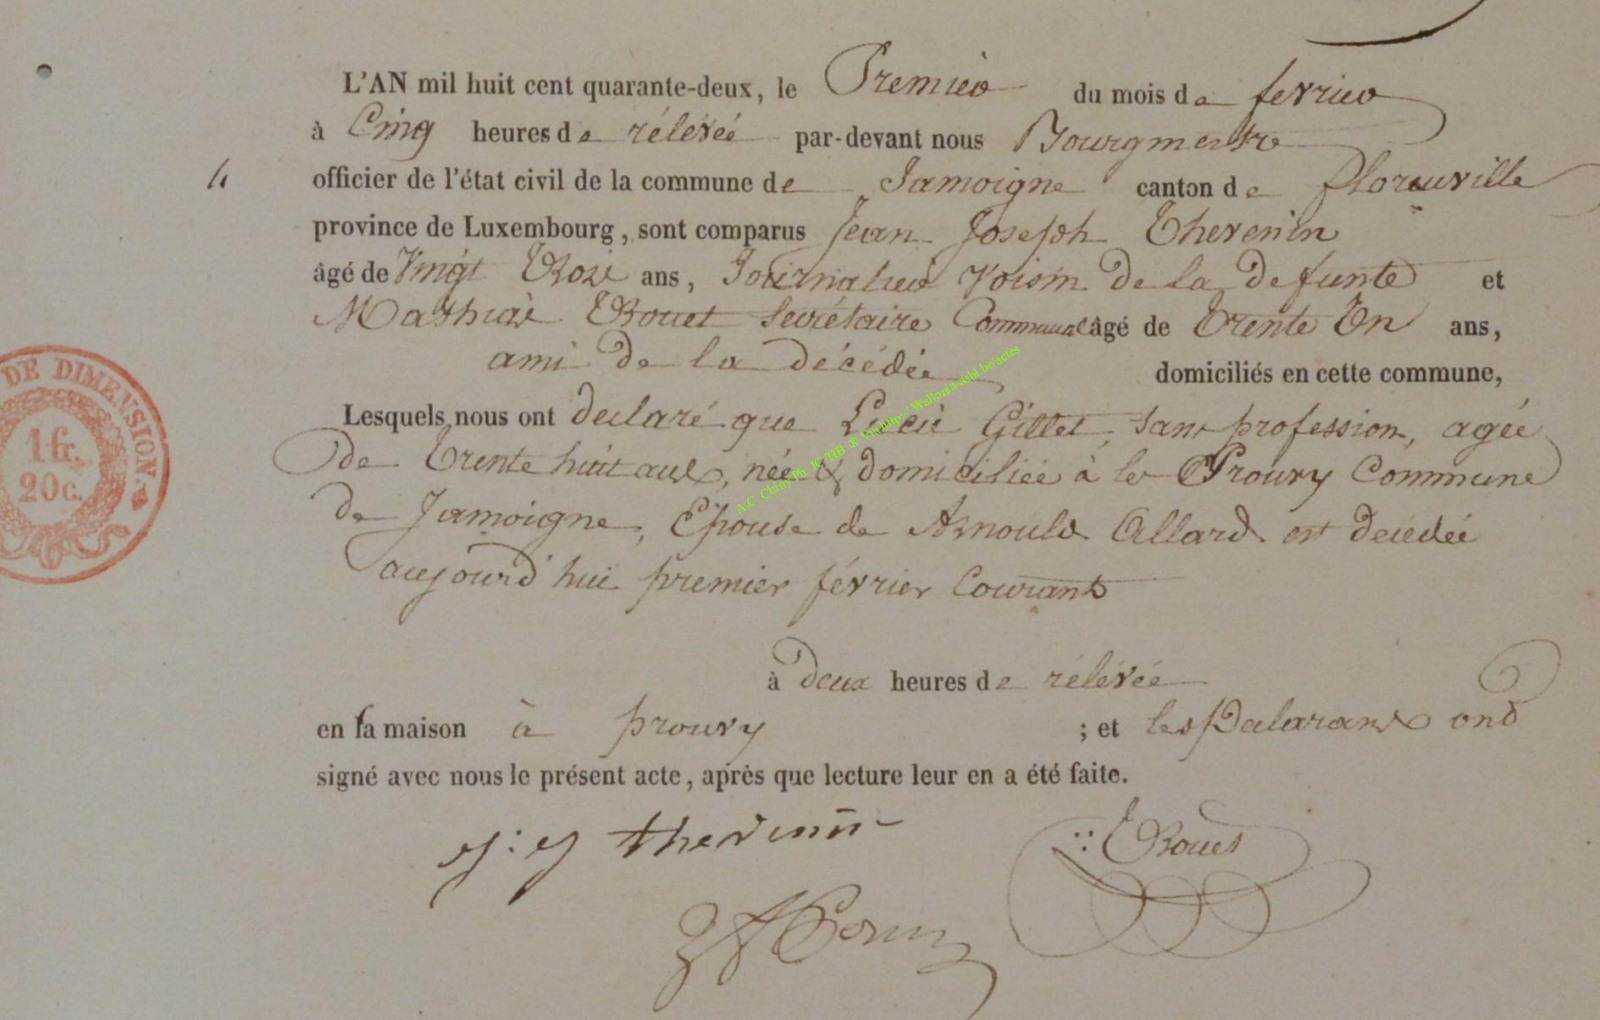 L'AN mil huit cent quarante-deux, le Premier du mois de fevrier
à Cinq heures de rélévée par-devant nous Bourgmestre
4 officier de l'état civil de la commune de Jamoigne canton de florenville
province de Luxembourg, sont comparus Jean Joseph Thevenin
âgé de Vingt Trois ans, Journalier voisin de la defunte et
Mathias Trouet Secrétaire Communal âgé de Trente Un ans,
ami de la décédée domiciliés en cette commune,
Lesquels nous ont declaré que Lucie Gillet, sans profession, agée
de Trente huit ans, née & domiciliée à le Prouvy Commune
de Jamoigne, Epouse de Arnould Allard est decedée
aujourd'hui premier février Courant
à deux heures de rélévée
en sa maison à prouvy ; et les Declarants ont
signé avec nous le présent acte, après que lecture leur en a été faite.
J: J thevenin
: : Trouet
DE DIMENSION.
1 fr.
20 c.